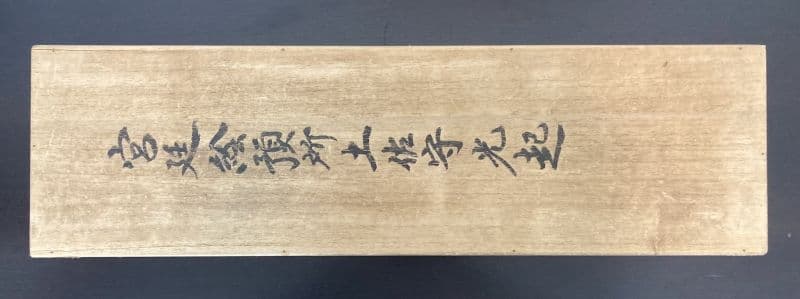 宮廷絵預所土佐守光起